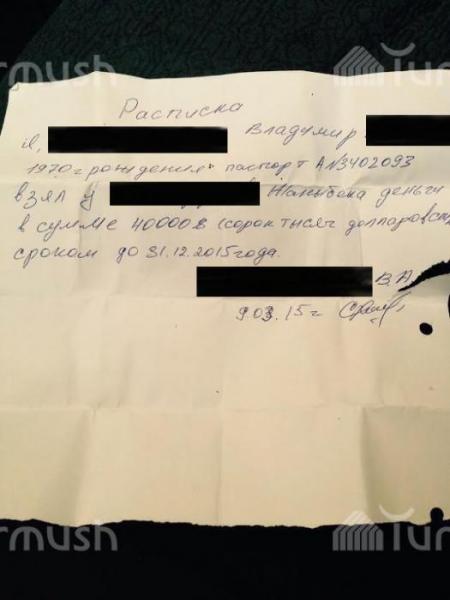 Turmush
Расписка
Я, Владимир
1970 г рождения паспорт AN3402093
взял у Жаныбека деньги
в сумме 40000$ (сорок тысяч долларов
сроком до 31.12.2015 года.
В.А
9.03.15 г
urmush
Tur